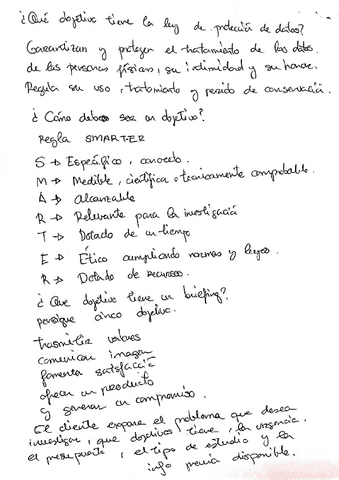 ¿Qué objetivo tiene la ley de protección de datos?
Garantizan y protegen el tratamiento de los datos
de las personas físicas, su intimidad y su honor.
Regula su uso, tratamiento y periodo de conservación.
¿Cómo debe ser un objetivo?
Regla SMARTER
S → Específico, concreto.
M → Medible, científica o tecnicamente comprobable.
A → Alcanzable
R → Relevante para la investigació
T → Dotado de un tiempo
E → Ético cumpliendo normas y leyes
R → Dotado de recursos.
¿Que objetivo tiene un briefing?
persigue cinco objetivos.
trasmitir valores
comunicar imagen
fomenta satisfacció
ofrecer un producto
y generar un compromiso.
El cliente expone el problema que desea
investigar, que objetivos tiene, la urgencia,
el presupuesto, el tipo de estudio y la
info previa disponible.